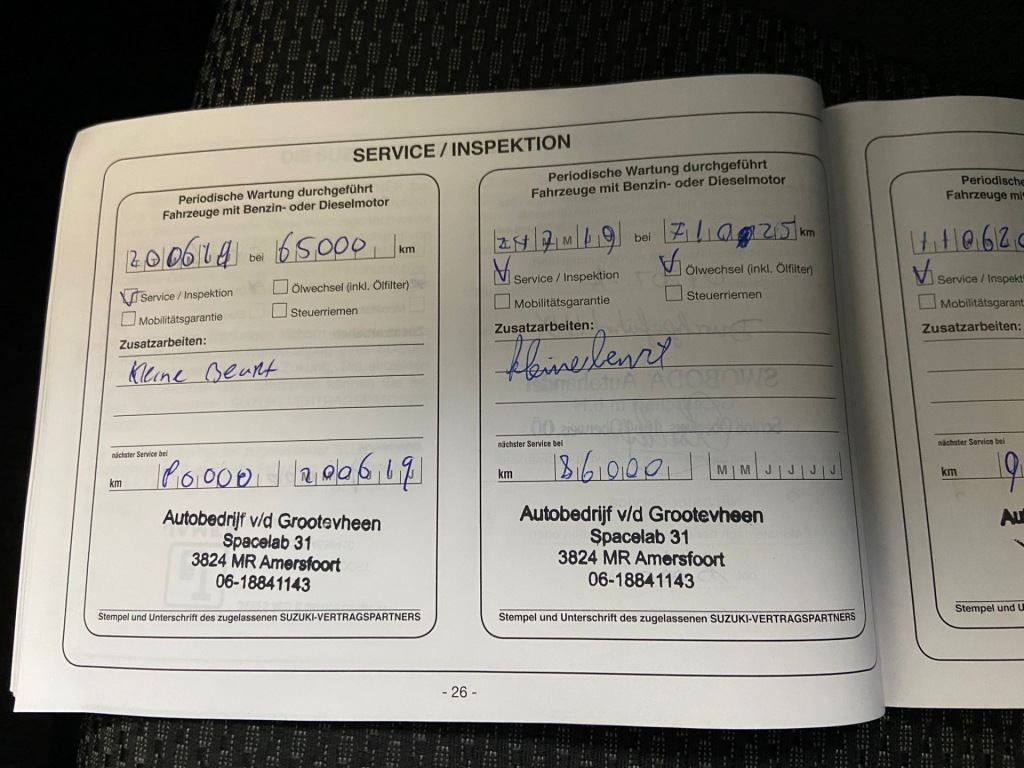 SERVICE / INSPEKTION
Periodische Wartung durchgeführt
Fahrzeuge mit Benzin- oder Dieselmotor
200619 bei 65000 km
Service / Inspektion
Ölwechsel (inkl. Ölfilter)
Mobilitätsgarantie
Steuerriemen
Zusatzarbeiten:
Kleine Beurt
nächster Service bei
km 80000 200619
Autobedrijf v/d Grootevheen
Spacelab 31
3824 MR Amersfoort
06-18841143
Stempel und Unterschrift des zugelassenen SUZUKI-VERTRAGSPARTNERS
Periodische Wartung durchgeführt
Fahrzeuge mit Benzin- oder Dieselmotor
M 19 bei km
Service / Inspektion
Ölwechsel (inkl. Ölfilter)
Mobilitätsgarantie
Steuerriemen
Zusatzarbeiten:
kleine beurt
nächster Service bei
km 86000 M M J J J J
Autobedrijf v/d Grootevheen
Spacelab 31
3824 MR Amersfoort
06-18841143
Stempel und Unterschrift des zugelassenen SUZUKI-VERTRAGSPARTNERS
- 26 -
Periodische
Fahrzeuge mi
110620
Service / Inspekt
Mobilitätsgarant
Zusatzarbeiten:
nächster Service bei
km 9
Au
Stempel und U